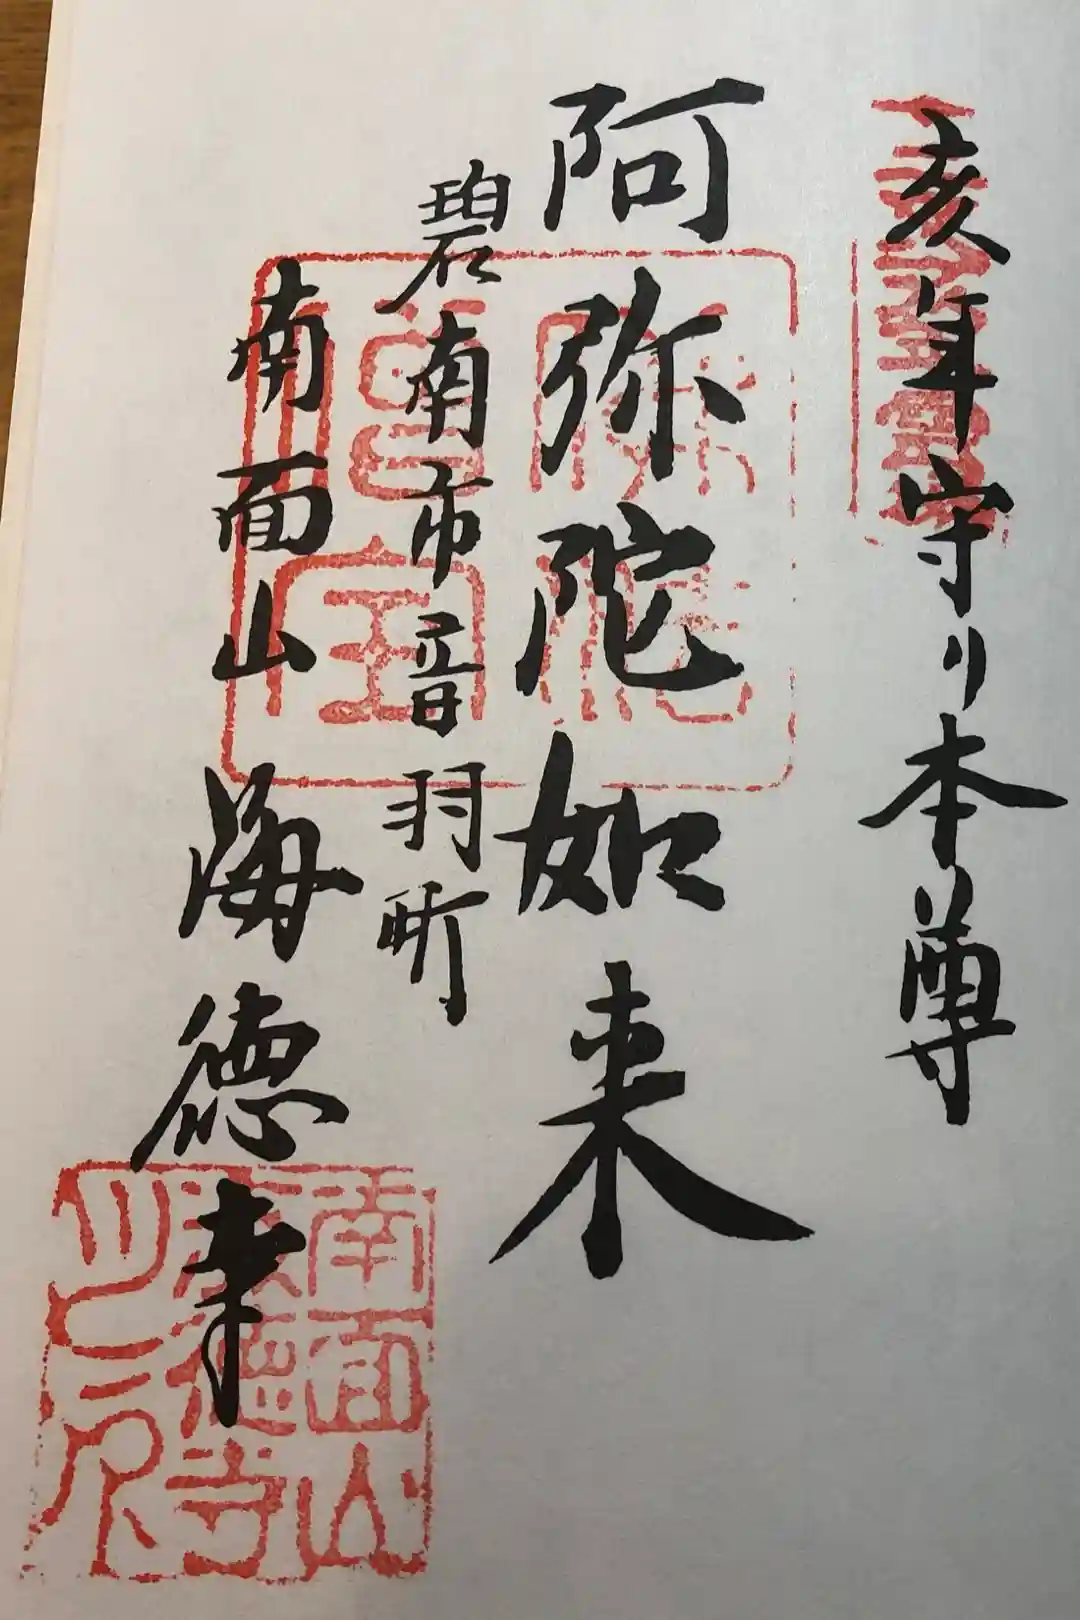 亥年守り本尊
阿弥陀如来
碧南市音羽町
南面山 海徳寺
南面山
海徳寺